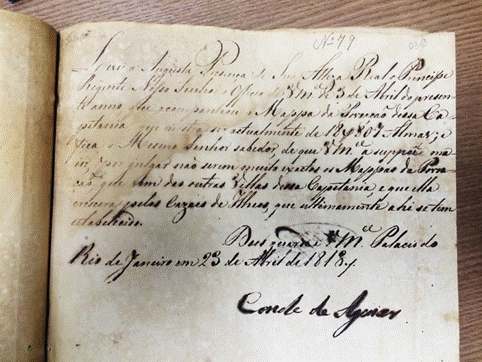 Nº 79
Levei á Augusta Presença de Sua Alteza Real o Principe
Regente Nosso Senhor o Officio de Vmce de 3 de Abril do presen
anno que acompanhou o Mappa da desta Ca-
pitania que mostra ser actualmente de Almas, e
fica o Mesmo Senhor sabedor de que Vmce a suppoe ma
ior, por julgar não serem muito exactos os Mappas da Povo
ação, que vem das outras Villas dessa Capitania, e que ella
crescerá pelos Cazaes de Ilheos, que ultimamente ahi se tem
estabelecido.
Deos guarde a Vmce Palacio do
Rio de Janeiro em 23 de Abril de
Conde de Aguiar